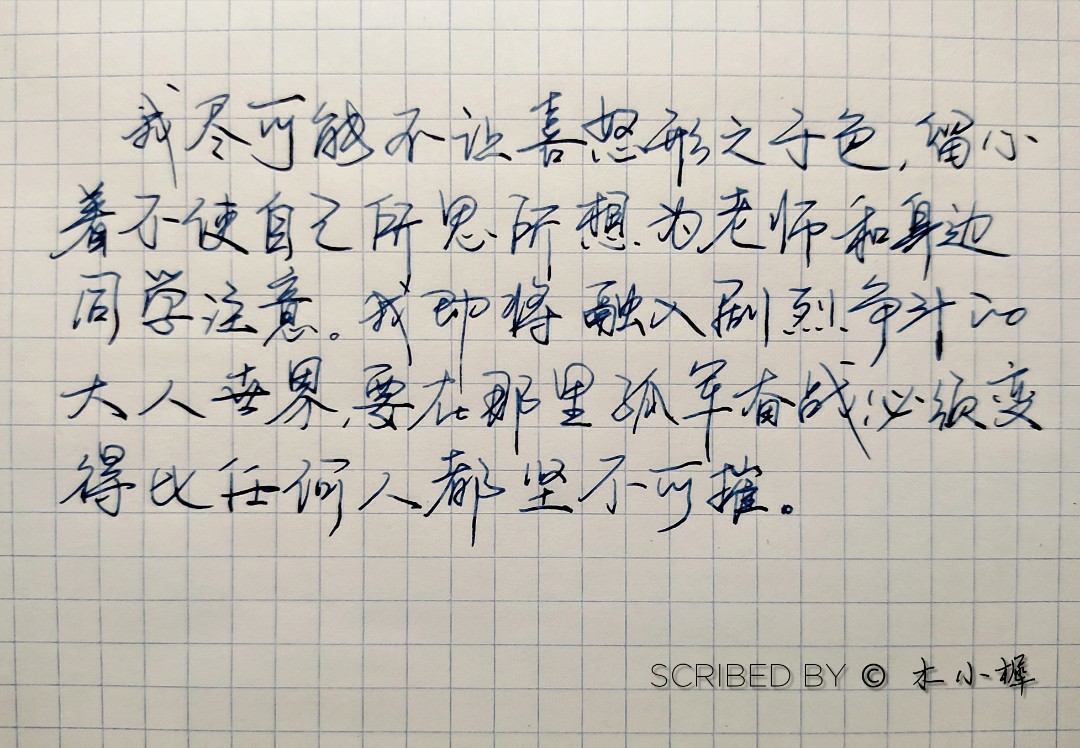 我尽可能不让喜怒形之于色,留心
着不使自己所思所想为老师和身边
同学注意。我即将融入剧烈争斗的
大人世界,要在那里孤军奋战,必须变
得比任何人都坚不可摧。
SCRIBED BY © 木小樨